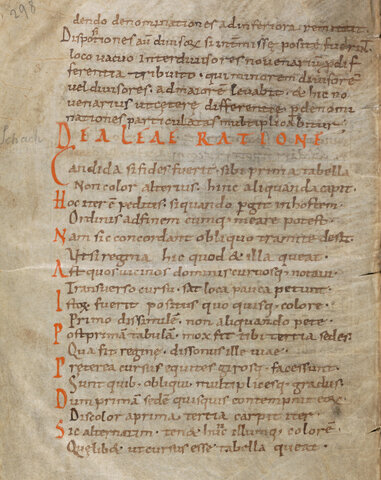 298
dendo denominationes ad inferiora remittat
loco vacuo inter divisores novenariũ & dif
ferentia tribuito · qui minorem divisorẽ
vel divisores · ad maiorẽ levabit · & hic no
venarius ut cetere differentie p denomi
nationes particulatas multiplicabitur
Schach
DE ALEAE RATIONE
Candida si fides fuerit · sibi prima tabella
Non color alterius · hinc aliquando capit ·
Hoc iter ẽ peditus · si quando pgit in hostem
Ordinis ad finem cumq; meare potest ·
Nam sic concordant obliquo tramite desit ·
Ut si regina hic quod & illa queat ·
Ast quos vicinos dominis cursosq; notavi ·
Transverso cursu · sat loca pauca petunt
fuerit positus quo quisq; colore ·
Primo dissimulẽ non aliquando pete ·
Post primã tabulã · mox fit tibi tertia sedes ·
Qua fit reginę · dissonus ille viae ·
Preterea cursus equites girosq; facessunt
Sunt quib; obliqui multiplicesq; gradus
Dum primã sedẽ quisquis contempnit eorx
Discolor a prima · tertia carpit iter
Sic alternatim · tenet hunc illumq; colorẽ
Quelib& ut cursus esse tabella queat ·